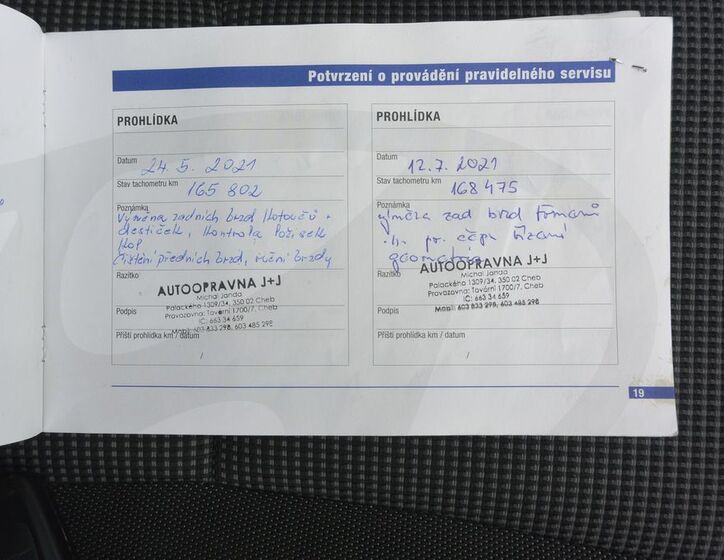 Potvrzení o provádění pravidelného servisu
PROHLÍDKA
Datum 24. 5. 2021
Stav tachometru km 165 802
Poznámka
Výměna zadních brzd kotoučů +
destiček, kontrola ložisek
kol
čištění předních brzd, ruční brzdy
Razítko
AUTOOPRAVNA J+J
Michal Janda
Palackého 1309/34, 350 02 Cheb
Provozovna: Tovární 1700/7, Cheb
IČ: 663 34 659
Mobil: 603 833 298, 603 485 298
Podpis
Příští prohlídka km / datum
/
PROHLÍDKA
Datum 12. 7. 2021
Stav tachometru km 168 475
Poznámka
výměna zad brzd třmenů
pr. čepu řízení
geometrie
Razítko
AUTOOPRAVNA J+J
Michal Janda
Palackého 1309/34, 350 02 Cheb
Provozovna: Tovární 1700/7, Cheb
IČ: 663 34 659
Mobil: 603 833 298, 603 485 298
Podpis
Příští prohlídka km / datum
/
19